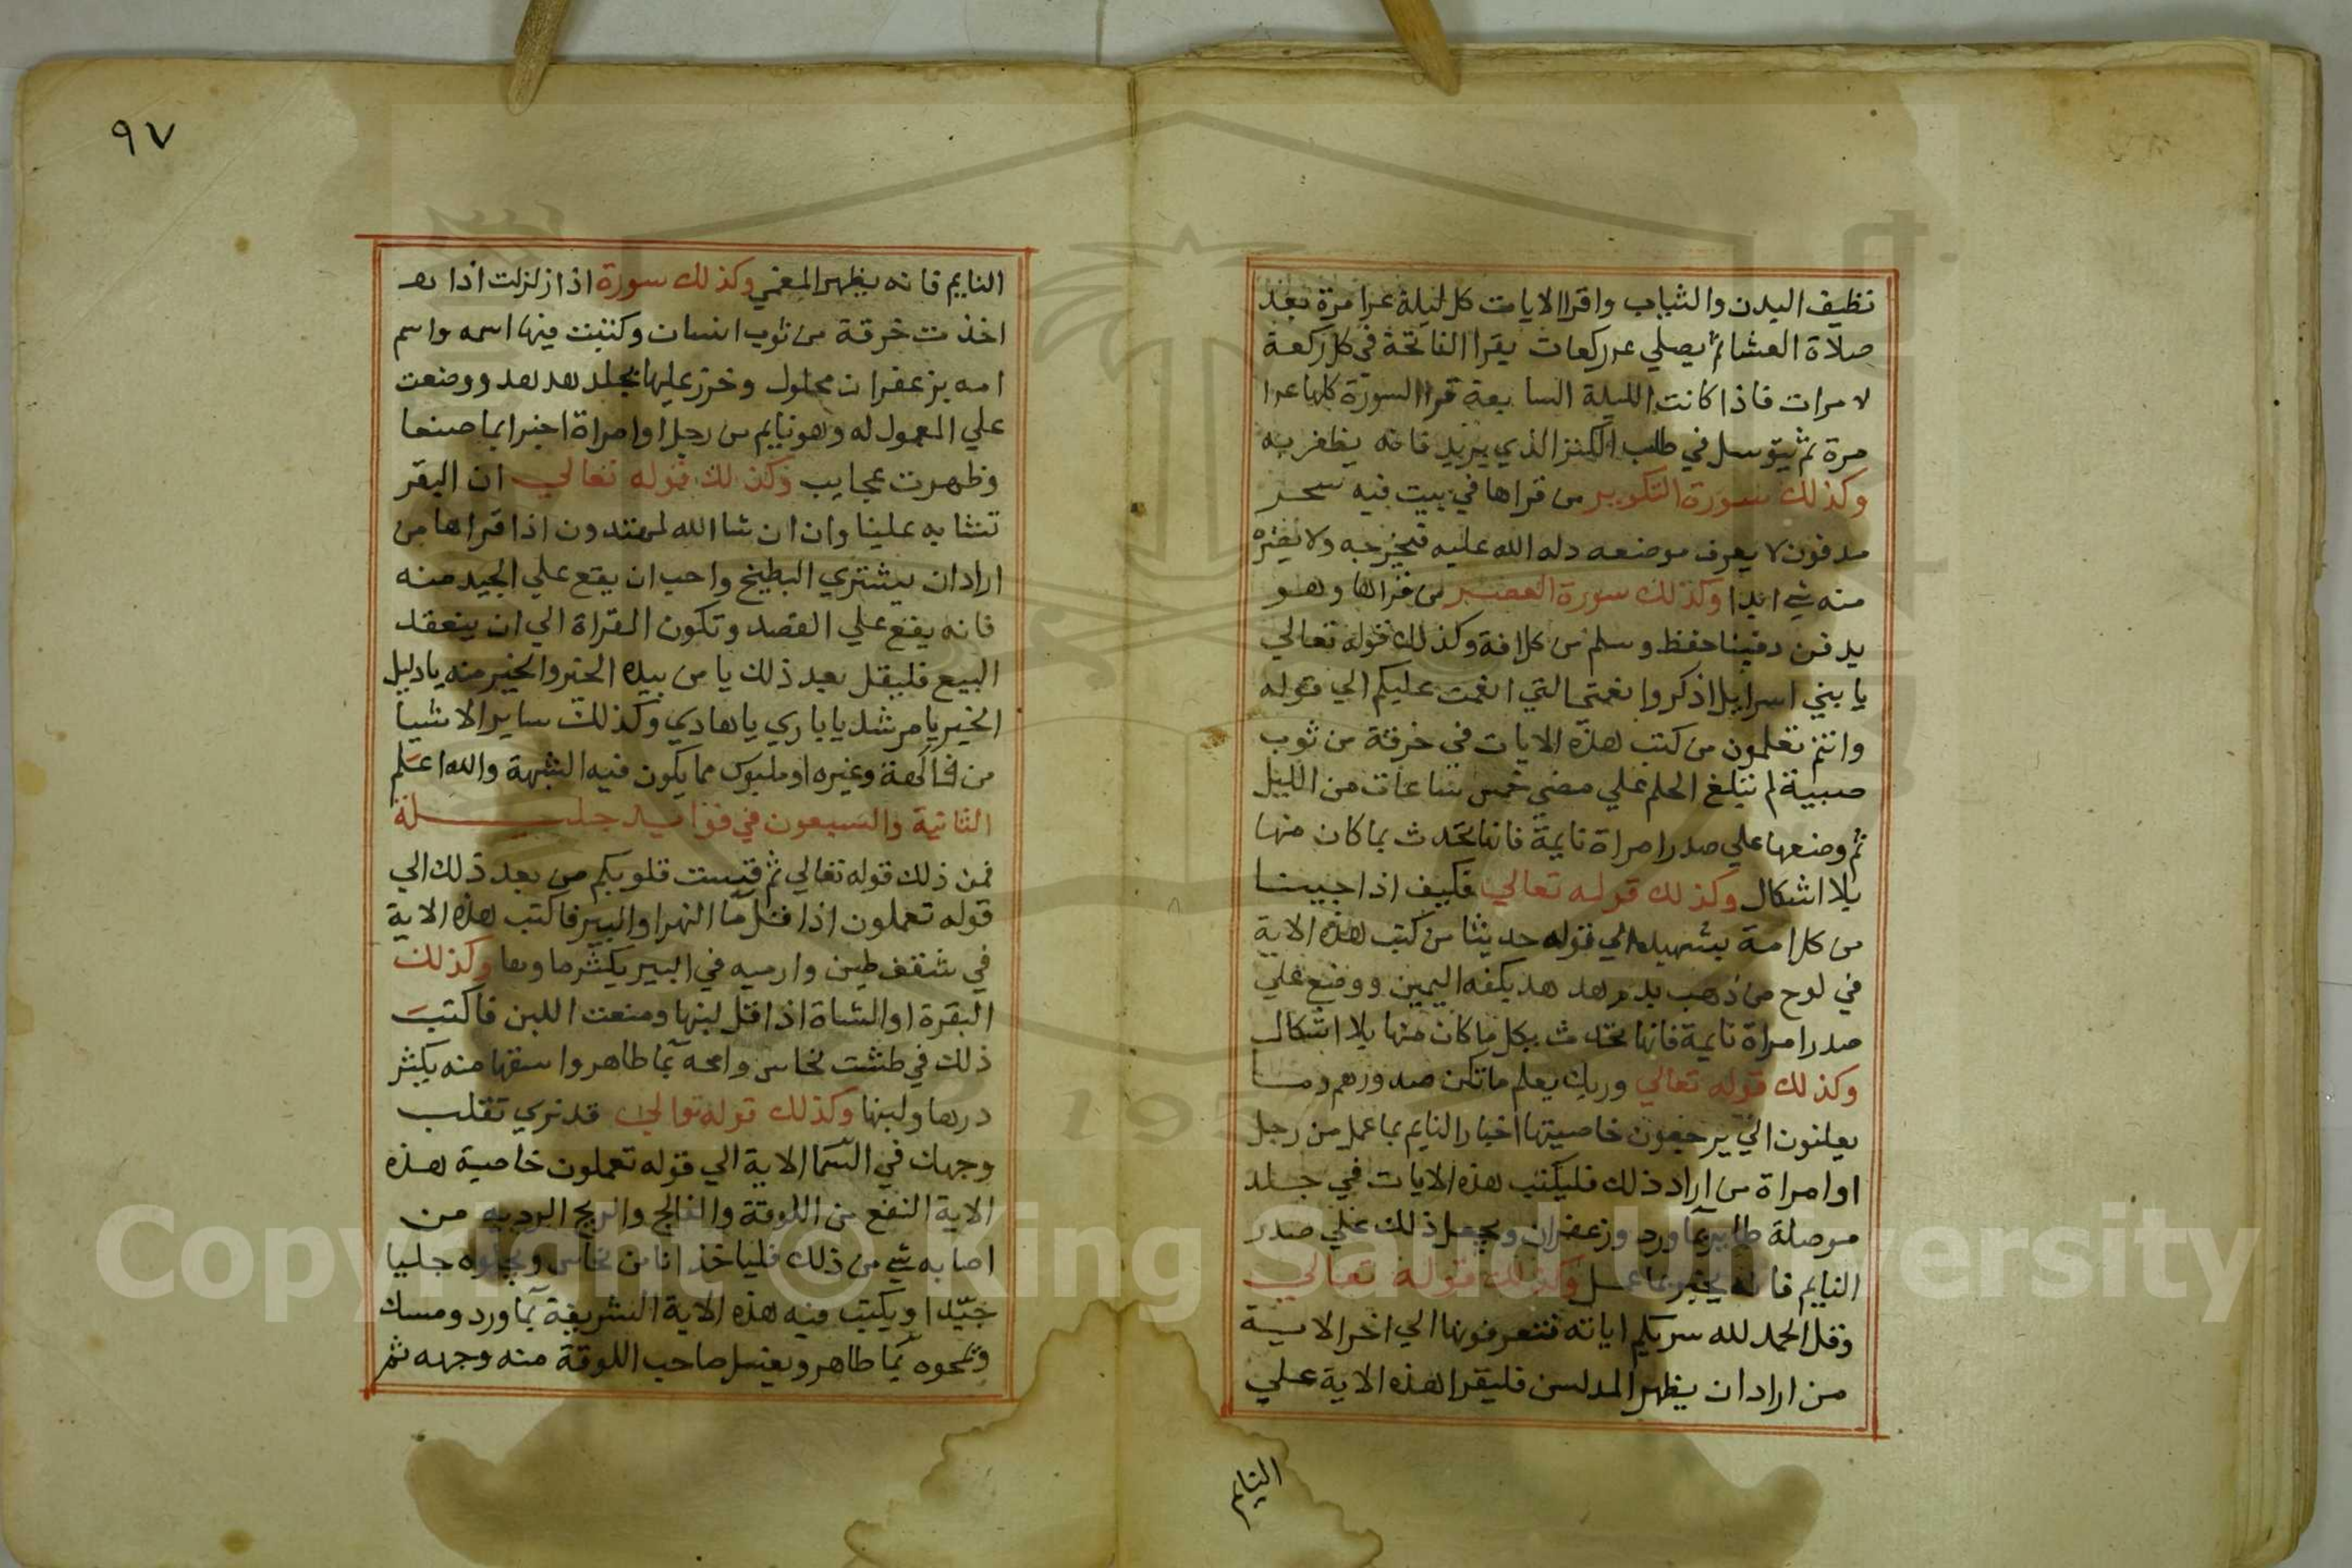 نظيف البدن والثياب واقرا الايات كل ليلة عرا مرة بعد
صلاة العشا ثم يصلي عر ركعات يقرا الفاتحة في كل ركعة
لا مرات فاذا كانت الليلة السابعة قرا السورة كلها عرا
مرة ثم يتوسل في طلب الكنز الذي يريد فانه يظفر به
وكذلك سورة التكوير من قراها في بيت فيه سحر
مدفون لا يعرف موضعه دله الله عليه فيخرجه ولا يضره
منه شي ابدا وكذلك سورة العصر من قراها وهو
يدفن دفينا حفظ وسلم من كل افة وكذلك قوله تعالي
يا بني اسرايل اذكروا نعمتي التي انعمت عليكم الي قوله
وانتم تعلمون من كتب هذه الايات في خرقة من ثوب
صبية لم تبلغ الحلم علي مضي خمس ساعات من الليل
ثم وضعها علي صدر امراة نايمة فانها تحدث بما كان منها
بلا اشكال وكذلك قوله تعالي فكيف اذا جينا
من كل امة بشهيد الي قوله حديثا من كتب هذه الاية
في لوح من ذهب بدم هدهد بكفه اليمين ووضع علي
صدر امراة نايمة فانها تحدث بكل ما كان منها بلا اشكال
وكذلك قوله تعالي وربك يعلم ما تكن صدورهم وما
يعلنون الي يرجعون خاصيتها اخبار النايم بما عمل من رجل
او امراة من اراد ذلك فليكتب هذه الايات في جلد
موصلة طاير بما ورد وزعفران ويجعل ذلك علي صدر
النايم فانه يخبر بما عمل وكذلك قوله تعالي
وقل الحمد لله سريكم اياته فتعرفونها الي اخر الاية
من اراد ان يظهر المدلس فليقرا هذه الاية علي
النايم
٩٧
النايم فانه يظهر المعمي وكذلك سورة اذا زلزلت اذا
اخذت خرقة من ثوب انسان وكتبت فيها اسمه واسم
امه بزعفران محلول وخرز عليها بجلد هدهد ووضعت
علي المعمول له وهو نايم من رجل او امراة اخبرا بما صنعا
وظهرت عجايب وكذلك قوله تعالي ان البقر
تشابه علينا وان ان شا الله لمهتدون اذا قراها من
اراد ان يشتري البطيخ واحب ان يقع علي الجيد منه
فانه يقع علي القصد وتكون القراة الي ان ينعقد
البيع فليقل بعد ذلك يا من بيده الخير والخير منه يا دليل
الخير يا مرشد يا باري يا هادي وكذلك ساير الاشيا
من فاكهة وغيره او ملبوس مما يكون فيه الشبهة والله اعلم
الثانية والسبعون في فوايد جليلة
فمن ذلك قوله تعالي ثم قست قلوبكم من بعد ذلك الي
قوله تعملون اذا قل ما النهر او البير فاكتب هذه الاية
في شقف طين وارميه في البير يكثر ماوها وكذلك
البقرة او الشاة اذا قل لبنها ومنعت اللبن فاكتب
ذلك في طشت نحاس وامحه بما طاهر واسقها منه يكثر
درها ولبنها وكذلك قوله تعالي قد نري تقلب
وجهك في السما الاية الي قوله تعملون خاصية هذه
الاية النفع من اللوقة والفالج والريح الرديه من
اصابه شي من ذلك فلياخذ انا من نحاس ويجلوه جليا
جيدا ويكتب فيه هذه الاية الشريفة بما ورد ومسك
ويمحوه بما طاهر ويغسل صاحب اللوقة منه وجهه ثم
Copyright © King Saud University
1957